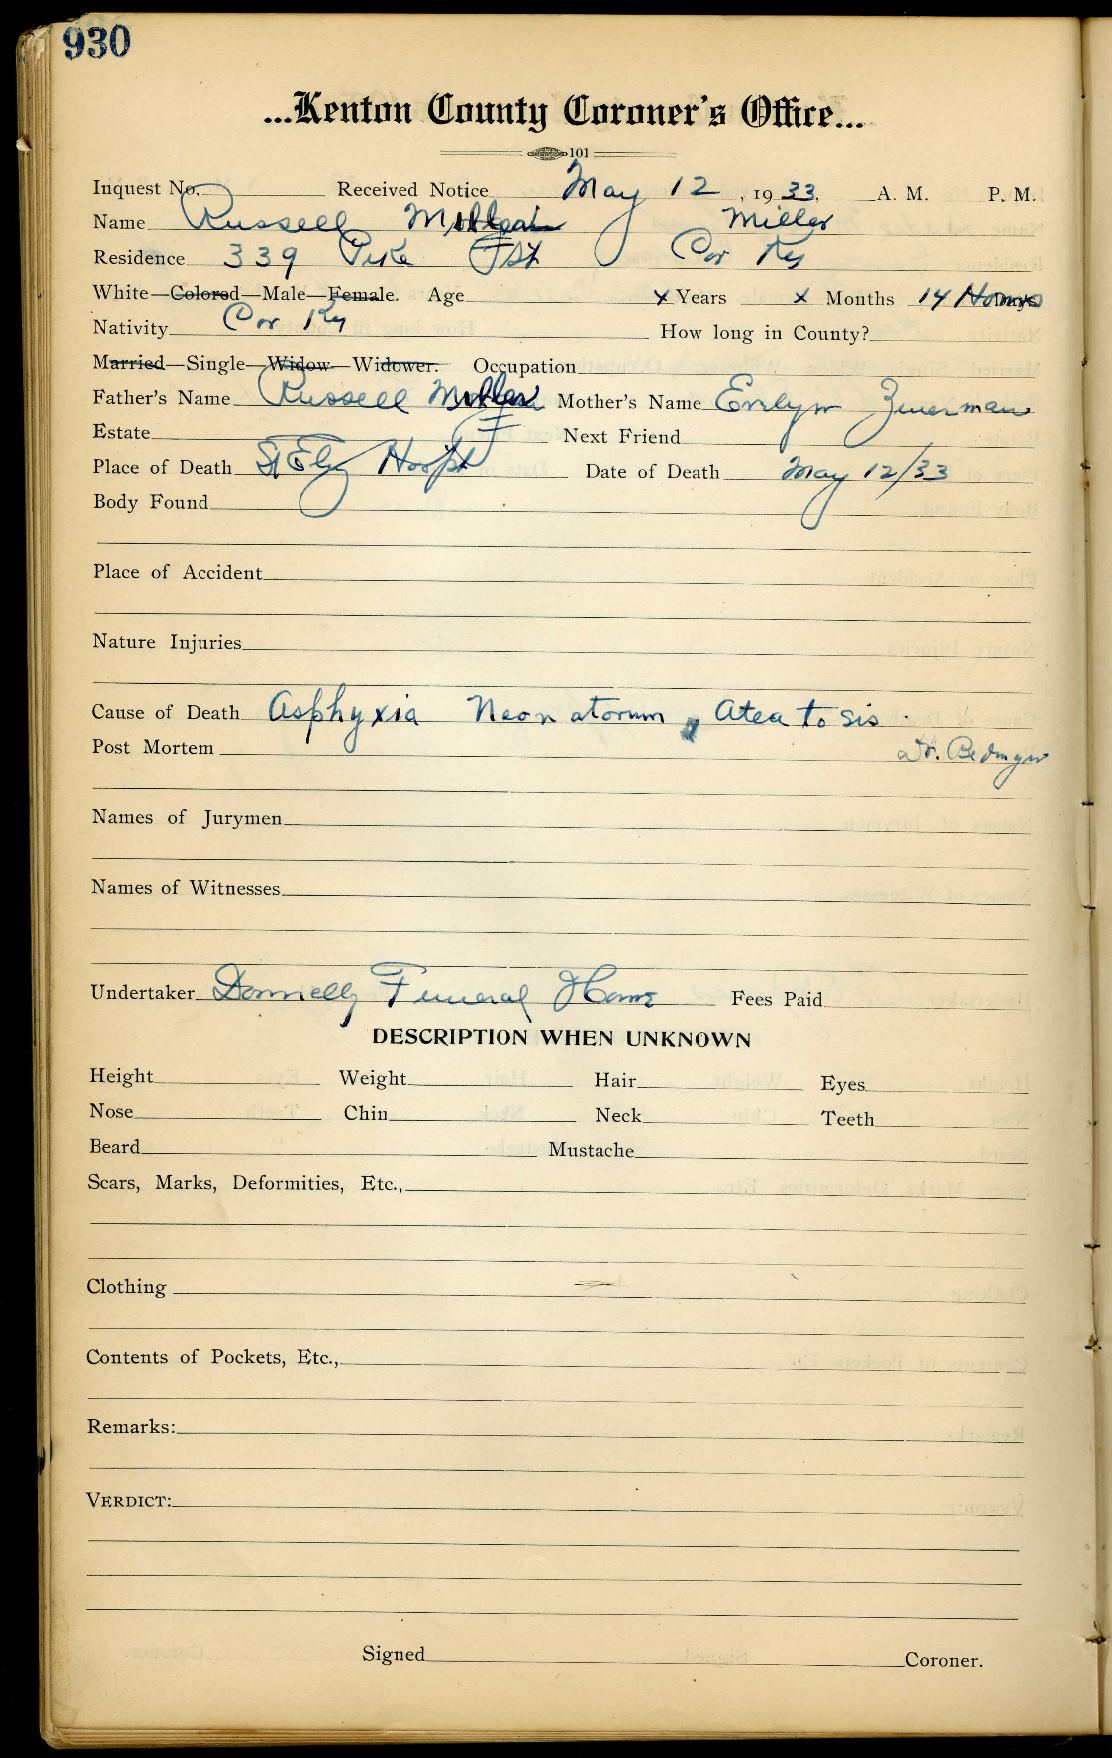 930
...Kenton County Coroner's Office...
101
Inquest No. Received Notice May 12, 1933. A. M. P. M.
Name Russell Miller
Residence 339 Pike St Cov Ky
White—Colored—Male—Female. Age x Years x Months 14 Hours
Nativity Cov Ky How long in County?
Married—Single—Widow—Widower. Occupation
Father's Name Russell Miller Mother's Name Evelyn Zimerman
Estate Next Friend
Place of Death St Eliz Hospt Date of Death May 12/33
Body Found
Place of Accident
Nature Injuries
Cause of Death Asphyxia Neonatorum, Ateatosis
Post Mortem Dr.
Names of Jurymen
Names of Witnesses
Undertaker Donnelly Funeral Home Fees Paid
DESCRIPTION WHEN UNKNOWN
Height Weight Hair Eyes
Nose Chin Neck Teeth
Beard Mustache
Scars, Marks, Deformities, Etc.,
Clothing
Contents of Pockets, Etc.,
Remarks:
VERDICT:
Signed Coroner.